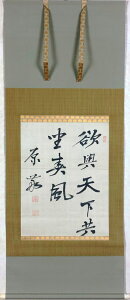 欲與天下共
坐春風
原敬